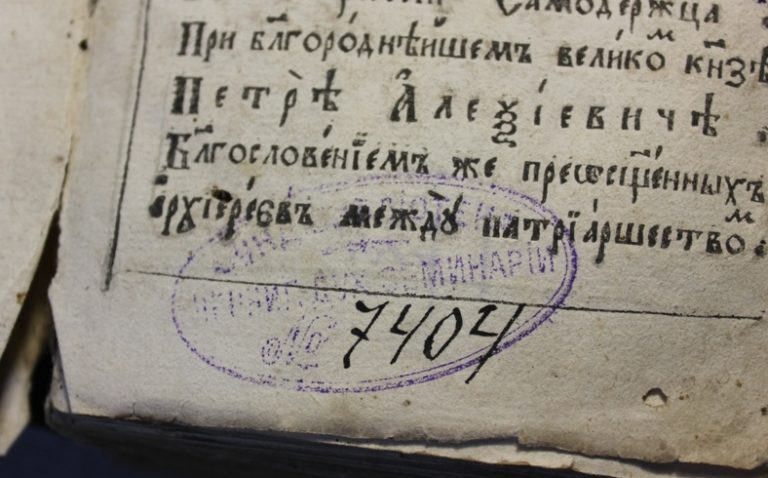 Самодержца
При бл҃горо́днѣишемъ вели́коᷟ кн҃зѣ
Петрѣ̀ Алеѯі́евичѣ .
Бл҃гослове́нїемъ же преѡсщ҃е́нныхъ
а҆рхїере́євъ междꙋ̀ патрїа́ршествоᷟ .
СЕМИНАРІИ
№ 7404